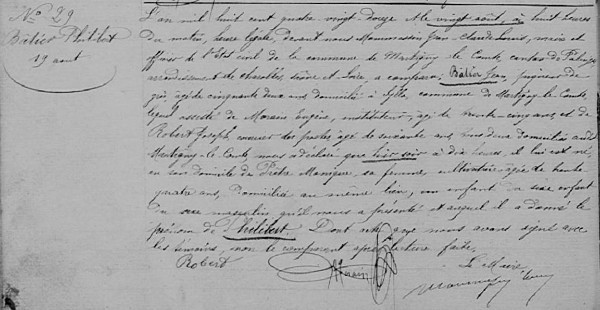 N° 29
Bâtier Philibert
19 août
L'an mil huit cent quatre vingt-douze et le vingt août, à huit heures
du matin, heure légale, devant nous Mommessin Jean-Claude Louis, maire et
officier de l'état civil de la commune de Martigny le Comte, canton de Palinges
arrondissement de Charolles, Saône et Loire, a comparu, Bâtier Jean,
âgé de cinquante deux ans domicilié à commune de Martigny le Comte,
lequel assisté de Morain Eugène, instituteur, âgé de trente-cinq ans, et de
Robert Joseph, des postes âgé de soixante ans, tous deux domiciliés audit
Martigny-le-Comte, nous a déclaré que hier soir à dix heures, il lui est né,
en son domicile, de Monique, sa femme, cultivatrice âgée de trente
quatre ans, domiciliée au même lieu, un enfant du sexe enfant
du sexe masculin qu'il nous a présenté et auquel il a donné le
prénom de Philibert. Dont acte que nous avons signé avec
les témoins, non le comparant après lecture faite.
Robert Morain Le Maire